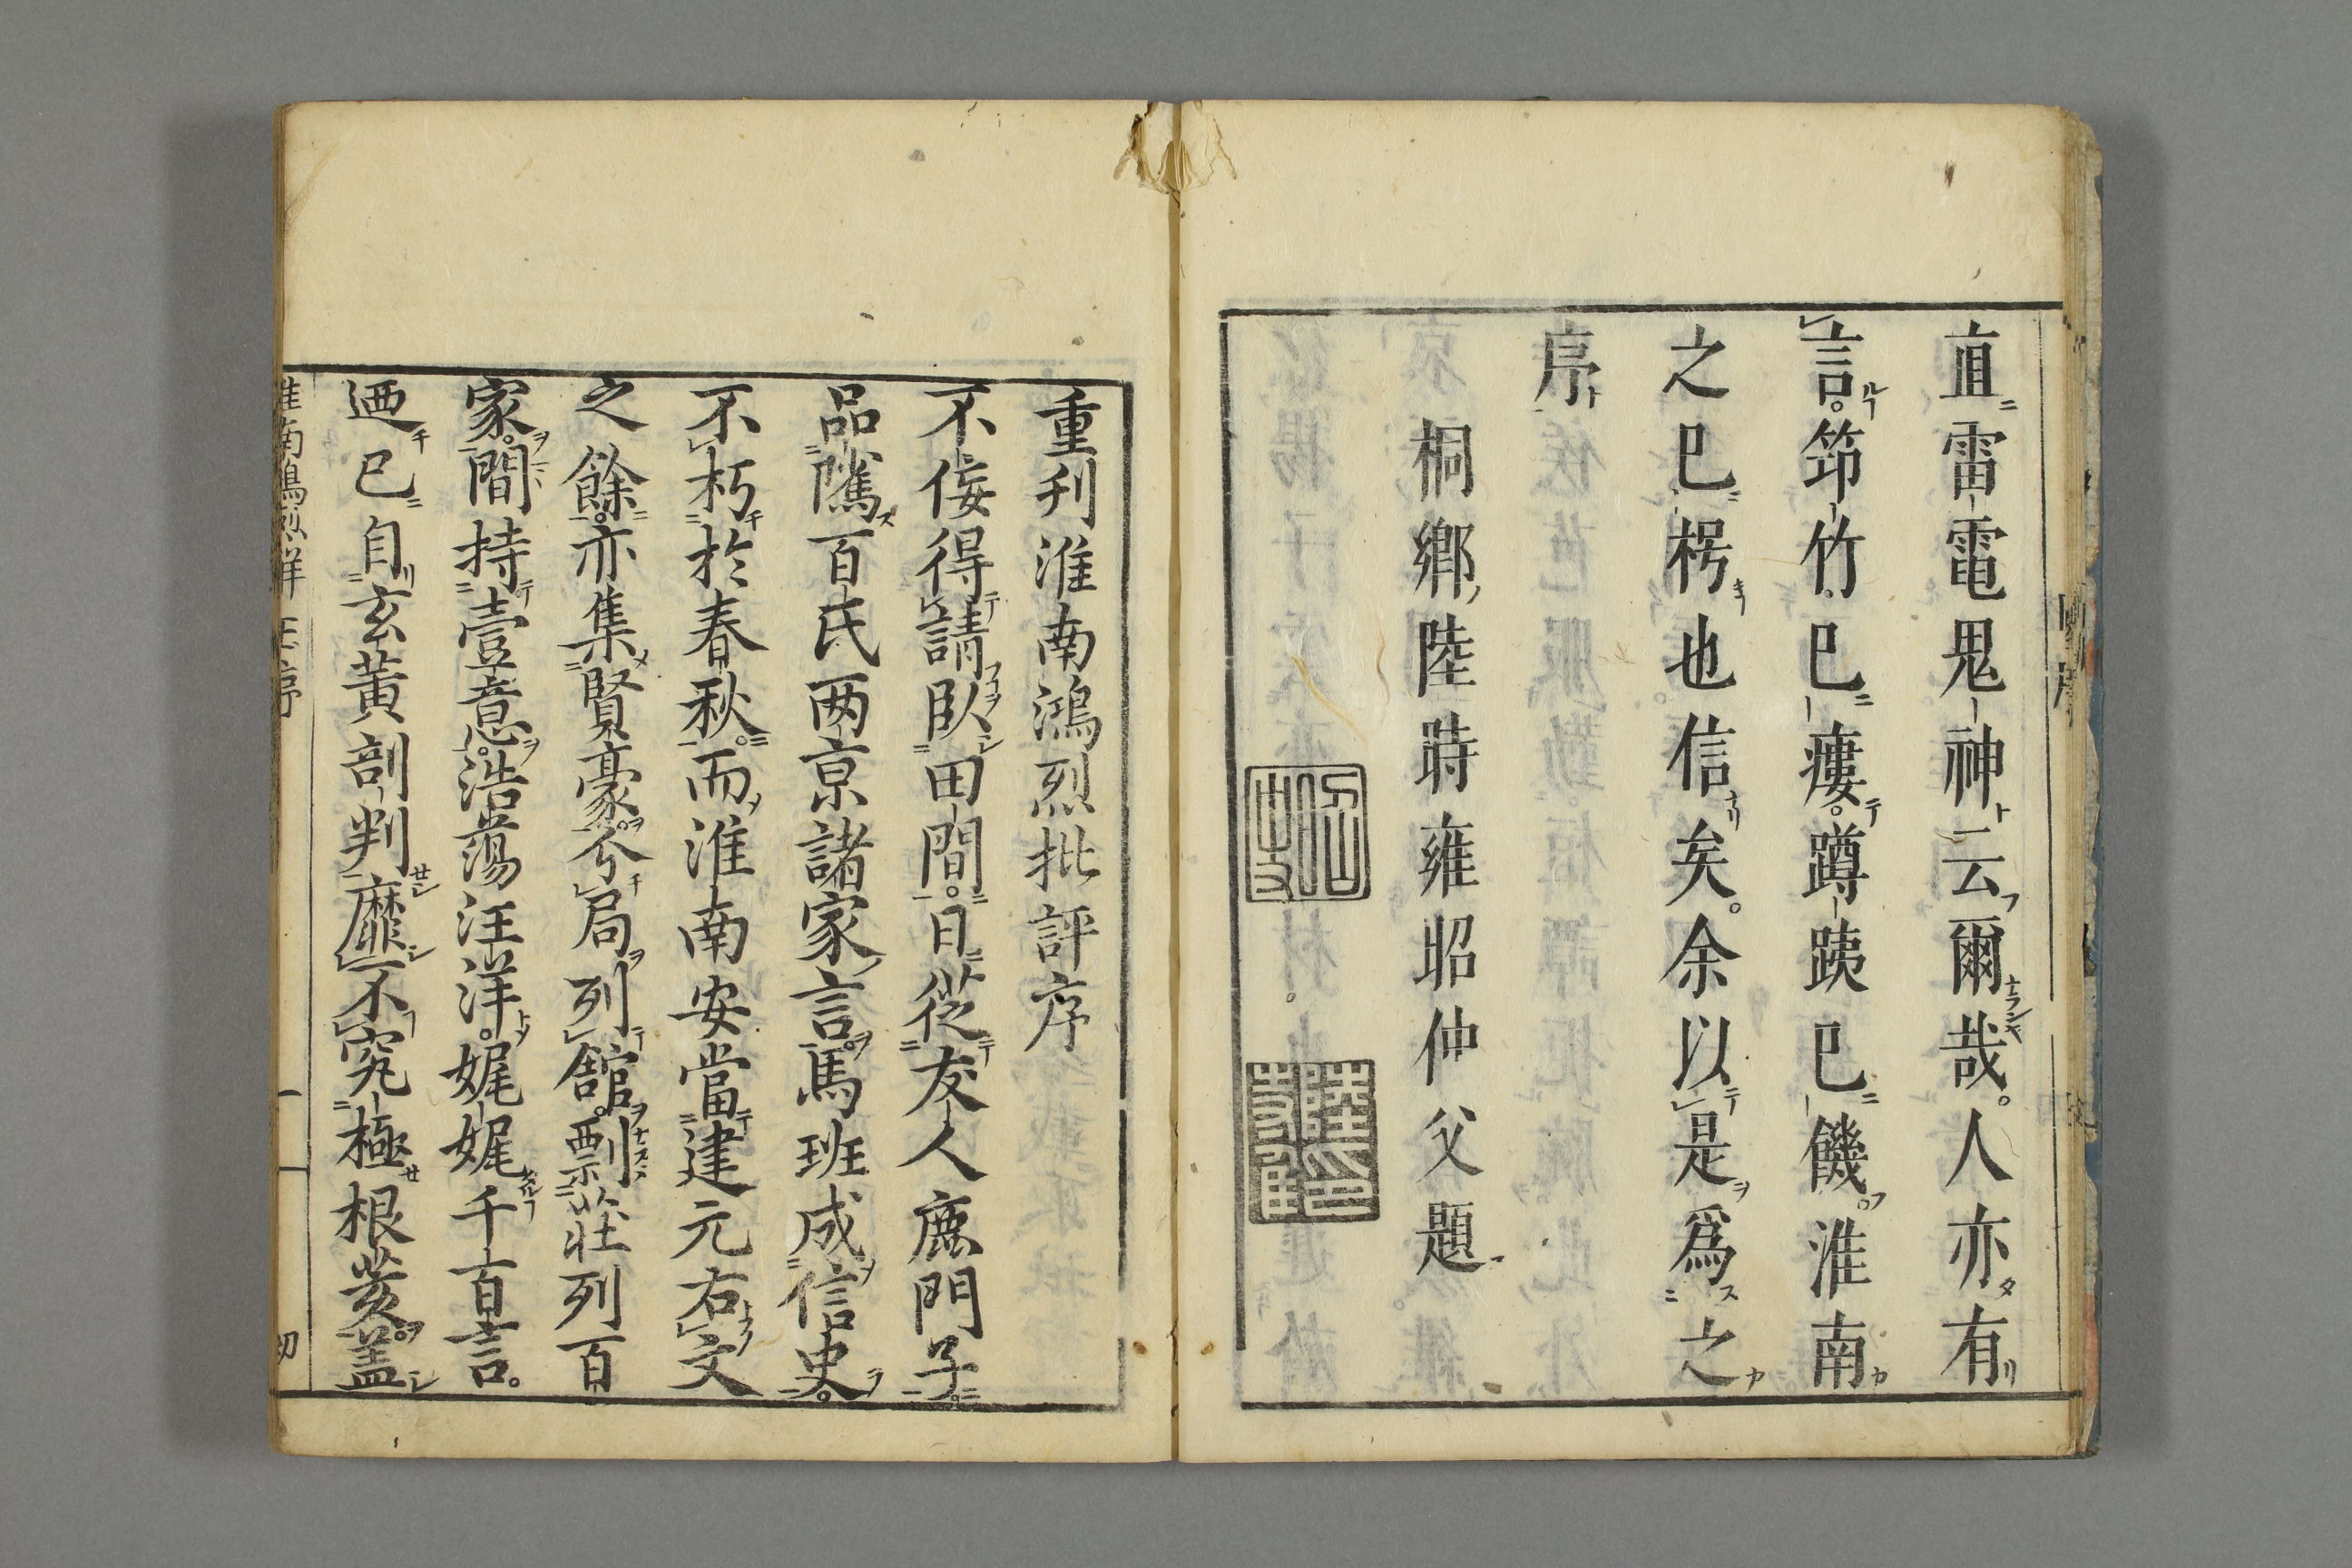 直雷電鬼神云爾哉。人亦有
言。筇竹已瘻。蹲跠已饑。淮南
之已楞也信矣。余以是爲之
序
桐鄉陸時雍昭仲父題
重刋淮南鴻烈批評序
不佞得請臥田間。日從友人鹿門子。
品隲百氏两京諸家言。馬班成信史。
不朽於春秋。而淮南安當建元右文
之餘。亦集賢豪。分局列舘。剽票莊列百
家。間持壹意。浩蕩汪洋。娓娓千百言。
迺已自玄黃剖判靡不究極根荄。盖